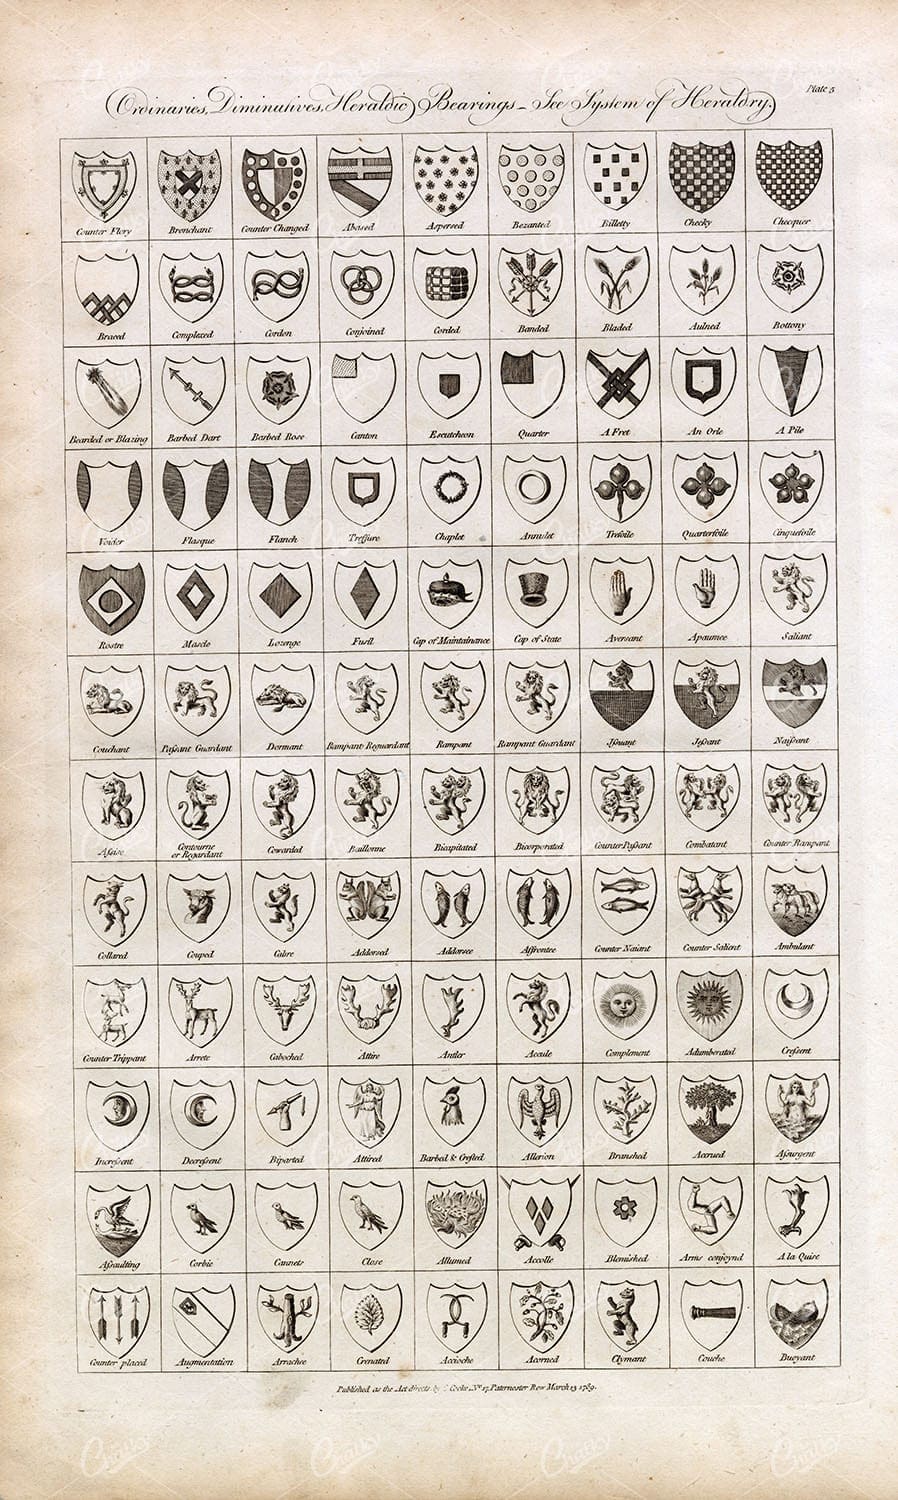 Plate 5
Ordinaries, Diminutives, Heraldic Bearings - See System of Heraldry.
Counter Flory Brenchant Counter Changed Abased Aspersed Bezanted Billetty Checky Chequer
Braced Complexed Cordon Conjoined Corded Banded Bladed Aulned Bottony
Bearded or Blazing Barbed Dart Barbed Rose Canton Escutcheon Quarter A Fret An Orle A Pile
Voider Flasque Flanch Treſsure Chaplet Annulet Trefoile Quarterfoile Cinquefoile
Rostre Mascle Lozenge Fusil Cap of Maintainance Cap of State Aversant Apaumee Saliant
Couchant Paſsant Guardant Dormant Rampant Reguardant Rampant Rampant Guardant Iſsuant Jeſsant Naiſsant
Aſsise Contourne Cowarded Baillonne Bicapitated Bicorporated Counter Paſsant Combatant Counter Rampant
or Regardant
Collared Couped Cabre Addorsed Addorsee Affrontee Counter Naiant Counter Salient Ambulant
Counter Trippant Arrete Caboched Attire Antler Accule Complement Adumberated Creſsent
Increſsent Decreſsent Biparted Attired Barbed & Crested Allerion Branshed Accrued Aſsurgent
Aſsaulting Corbie Cannets Close Allumed Accolle Blemished Arms conjoynd A la Quise
Counter placed Augmentation Arrachee Crenated Accroche Acorned Clymant Couche Buoyant
Published as the Act directs by C. Cooke, No. 17, Paternoster Row March 13, 1789.
Chalky